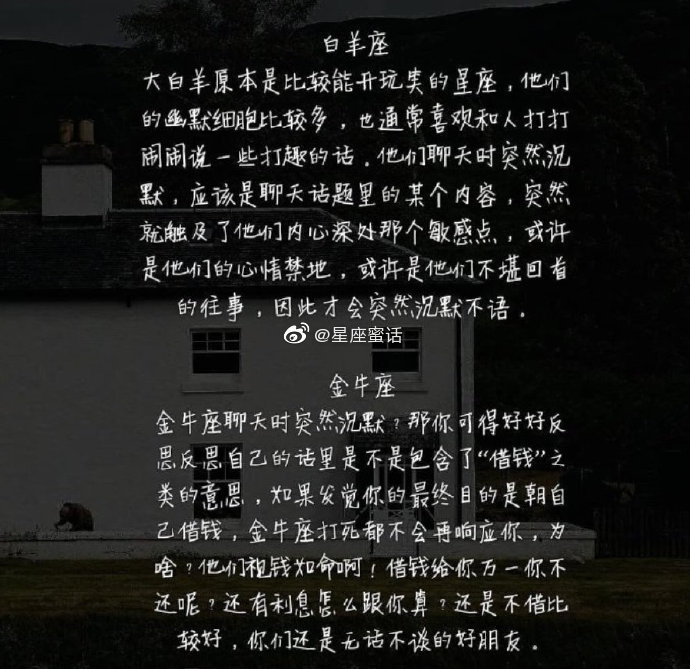 白羊座
大白羊原本是比较能开玩类的星座，他们
的幽默细胞比较多，也通常喜欢和人打打
闹闹说一些打趣的话，他们聊天时突然沉
默，应该是聊天话题里的某个内容，突然
就触及了他们内心深处那个敏感点，或许
是他们的心情禁地，或许是他们不堪回首
的往事，因此才会突然沉默不语。
@星座蜜话
金牛座
金牛座聊天时突然沉默？那你可得好好反
思反思自己的话里是不是包含了“借钱”之
类的意思，如果发觉你的最终目的是朝自
己借钱，金牛座打死都不会再响应你，为
啥？他们视钱如命啊！借钱给你万一你不
还呢？还有利息怎么跟你算？还是不借比
较好，你们还是无话不谈的好朋友。